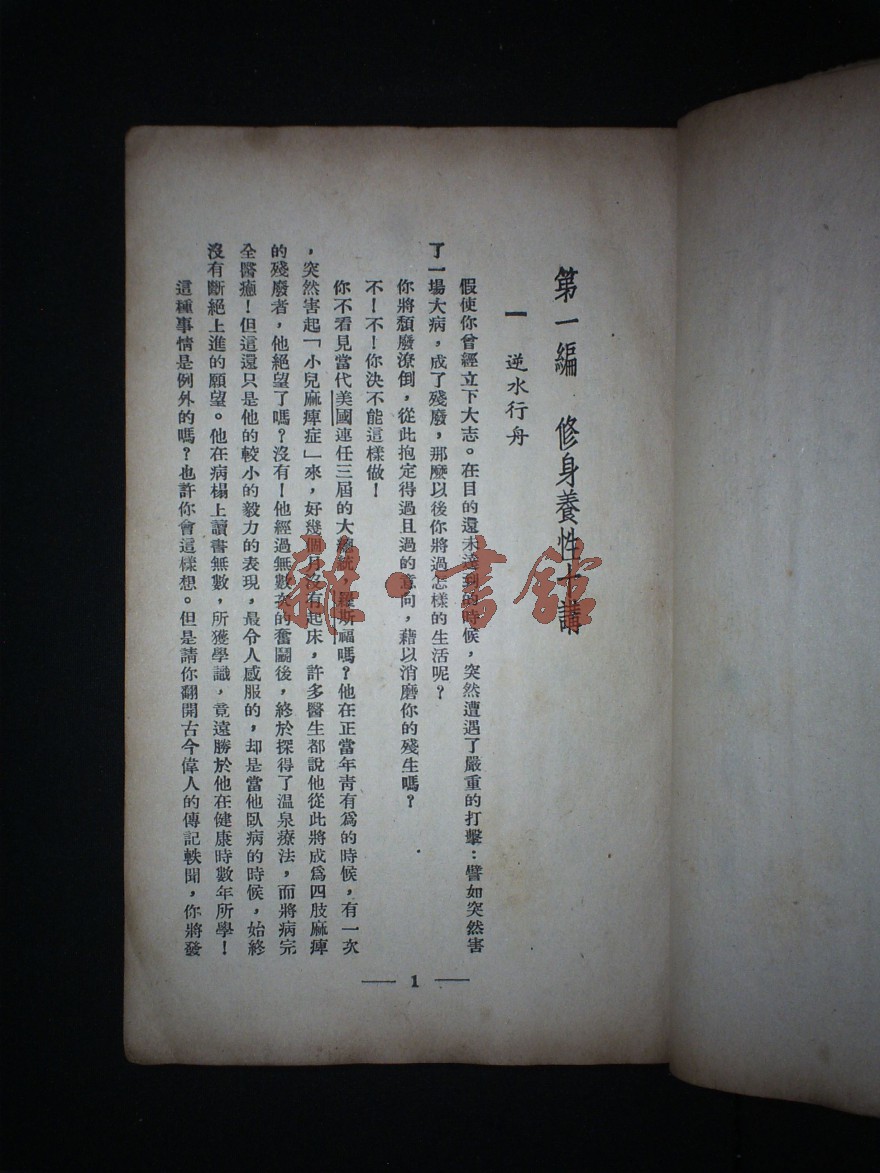 第一編　修身養性十講
一　逆水行舟
假使你曾經立下大志。在目的還未達到的時候，突然遭遇了嚴重的打擊：譬如突然害
了一場大病，成了殘廢，那麼以後你將過怎樣的生活呢？
你將頹廢潦倒，從此抱定得過且過的意向，藉以消磨你的殘生嗎？
不！不！你決不能這樣做！
你不看見當代美國連任三屆的大總統，羅斯福嗎？他在正當年青有爲的時候，有一次
，突然害起「小兒麻痺症」來，好幾個月沒有起床，許多醫生都說他從此將成爲四肢麻痺
的殘廢者，他絕望了嗎？沒有！他經過無數次的奮鬭後，終於探得了温泉療法，而將病完
全醫癒！但這還只是他的較小的毅力的表現，最令人感服的，却是當他臥病的時候，始終
沒有斷絕上進的願望。他在病榻上讀書無數，所獲學識，竟遠勝於他在健康時數年所學！
這種事情是例外的嗎？也許你會這樣想。但是請你翻開古今偉人的傳記軼聞，你將發
— 1 —
雜·書館